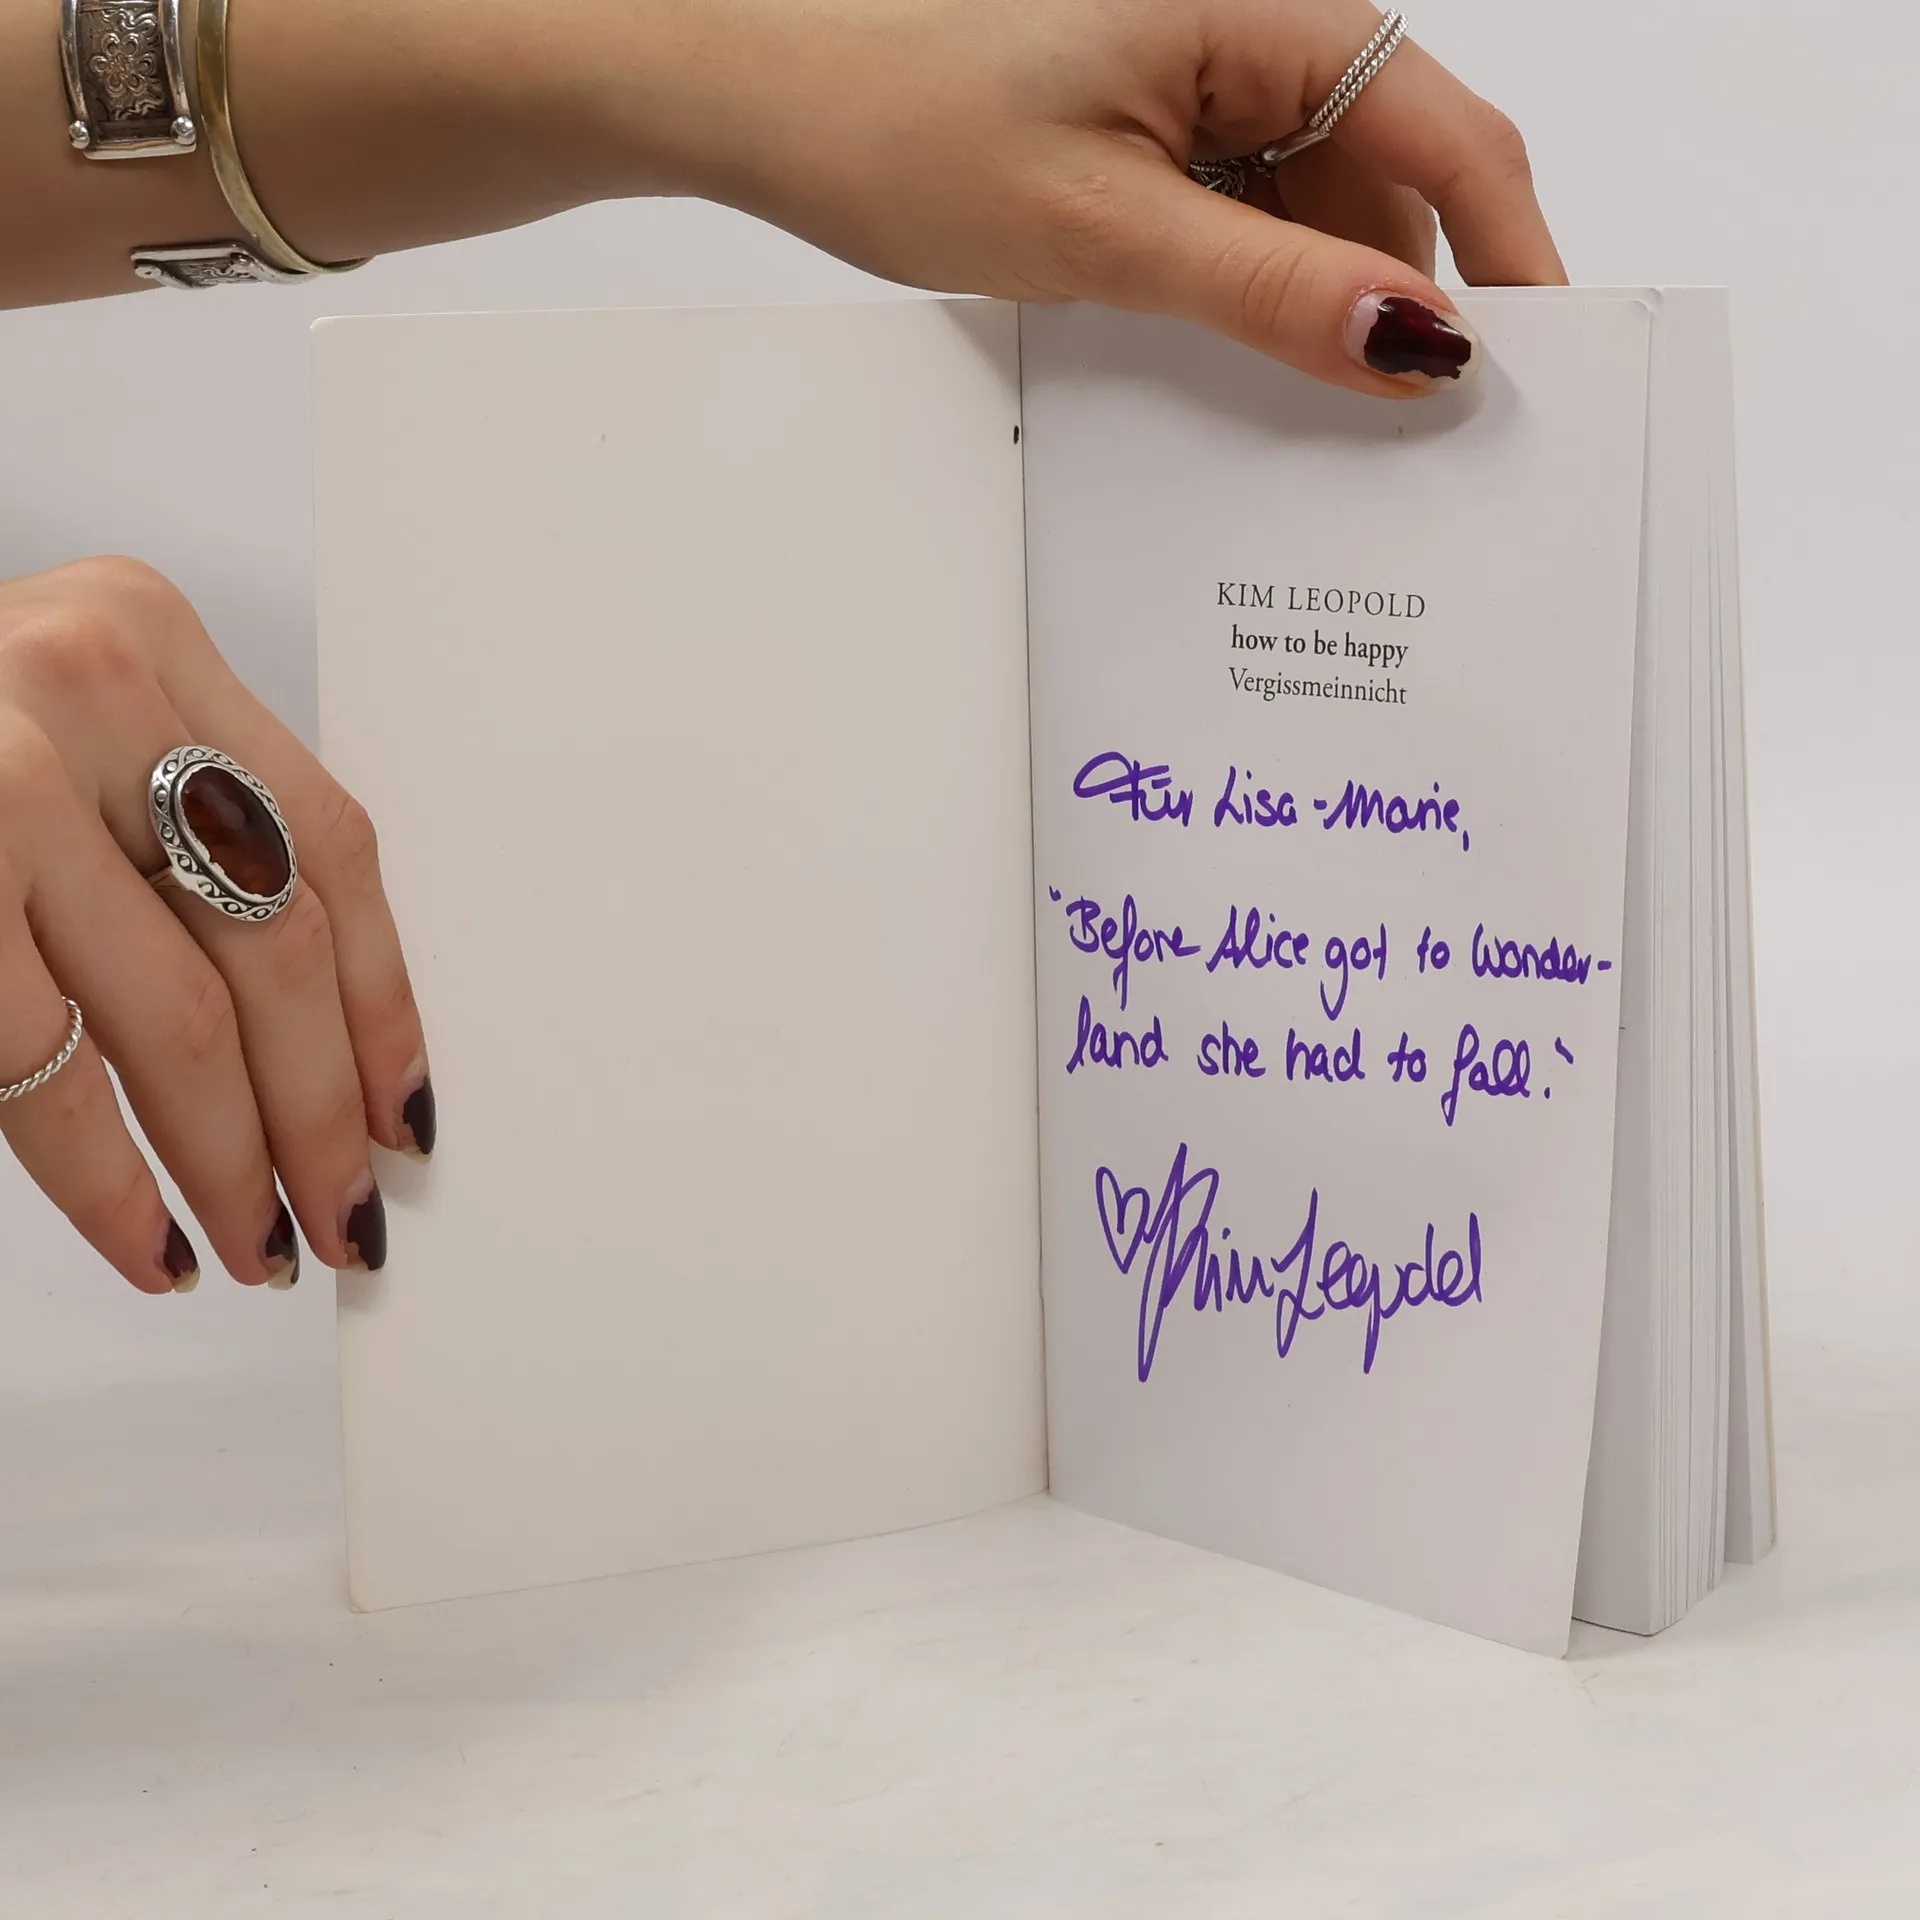 KIM LEOPOLD
how to be happy
Vergissmeinnicht
Für Lisa-Marie,
"Before Alice got to Wonder-
land she had to fall."
Kim Leopold